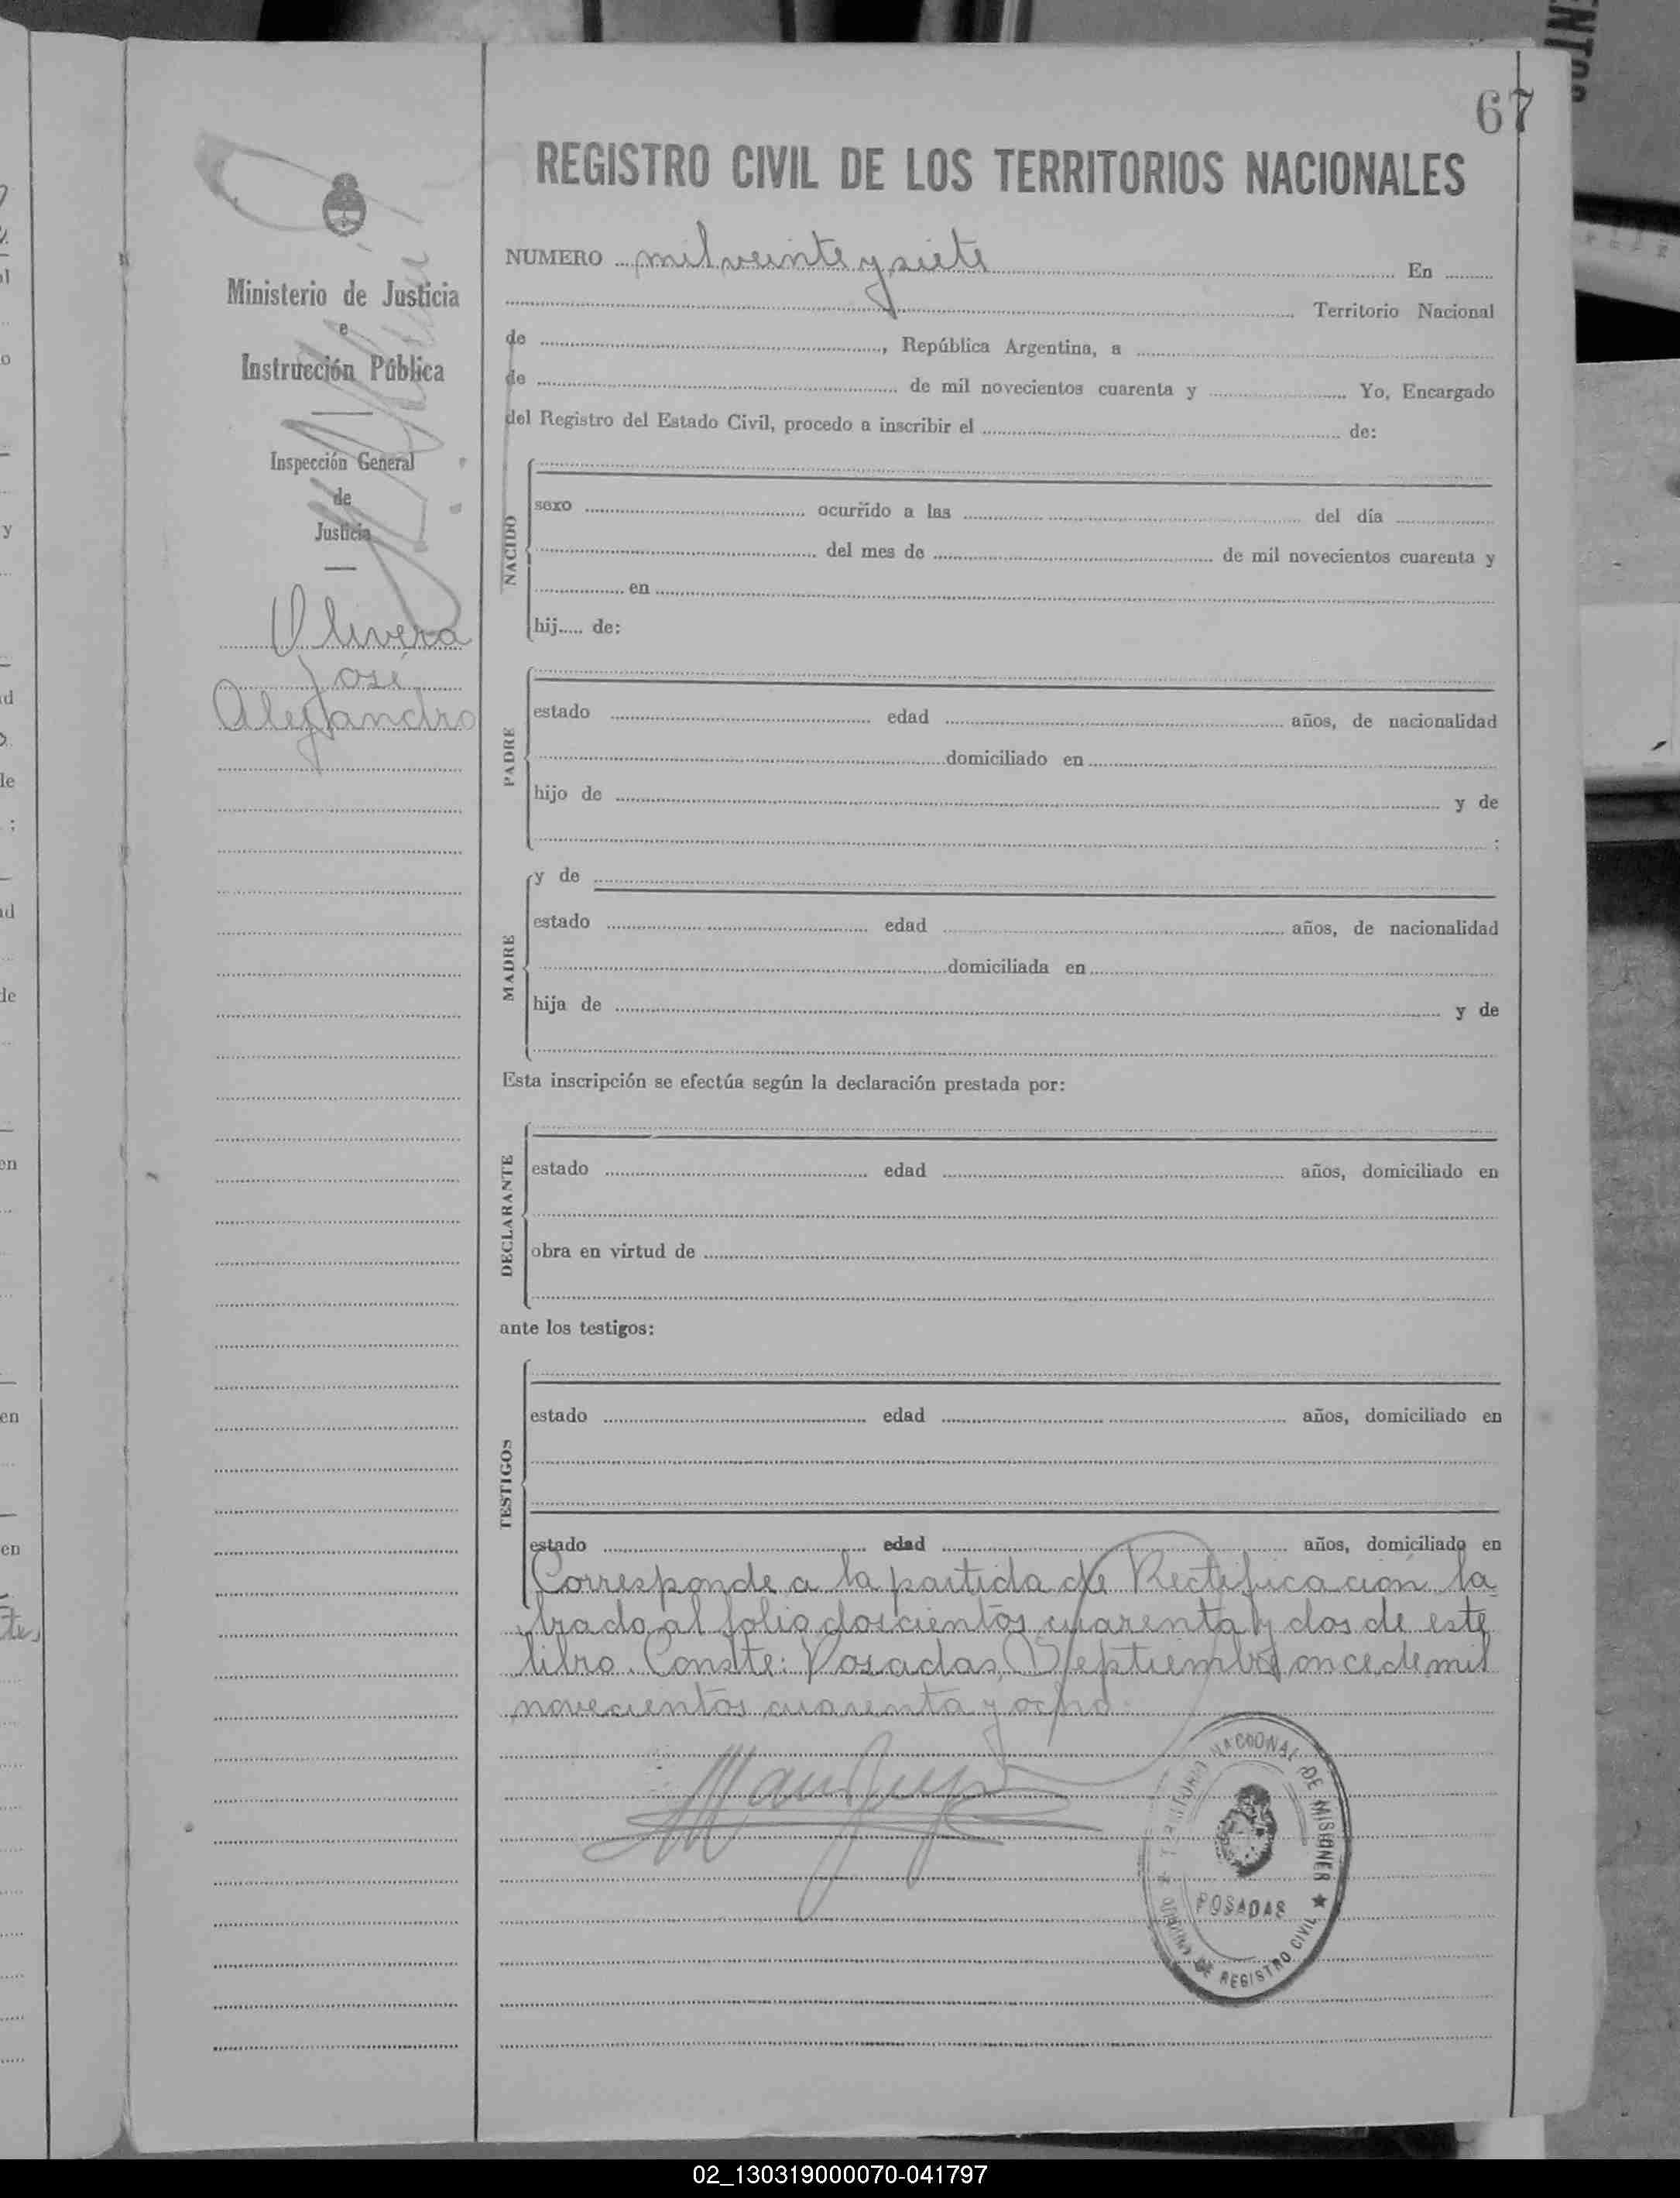 67
REGISTRO CIVIL DE LOS TERRITORIOS NACIONALES
Ministerio de Justicia
e
Instrucción Pública
Inspección General
de
Justicia
Olivera
José
Alejandro
NUMERO mil veinte y siete En
Territorio Nacional
de , República Argentina, a
de de mil novecientos cuarenta y Yo, Encargado
del Registro del Estado Civil, procedo a inscribir el de:
NACIDO
sexo ocurrido a las del día
del mes de de mil novecientos cuarenta y
en
hij..... de:
PADRE
estado edad años, de nacionalidad
domiciliado en
hijo de y de
;
MADRE
y de
estado edad años, de nacionalidad
domiciliada en
hija de y de
Esta inscripción se efectúa según la declaración prestada por:
DECLARANTE
estado edad años, domiciliado en
obra en virtud de
ante los testigos:
TESTIGOS
estado edad años, domiciliado en
estado edad años, domiciliado en
Corresponde a la partida de Rectificación la
brada al folio doscientos cuarenta y dos de este
libro. Conste: Posadas, Septiembre once de mil
novecientos cuarenta y ocho.
TERRITORIO NACIONAL DE MISIONES ★
POSADAS
DE REGISTRO CIVIL
02_130319000070-041797